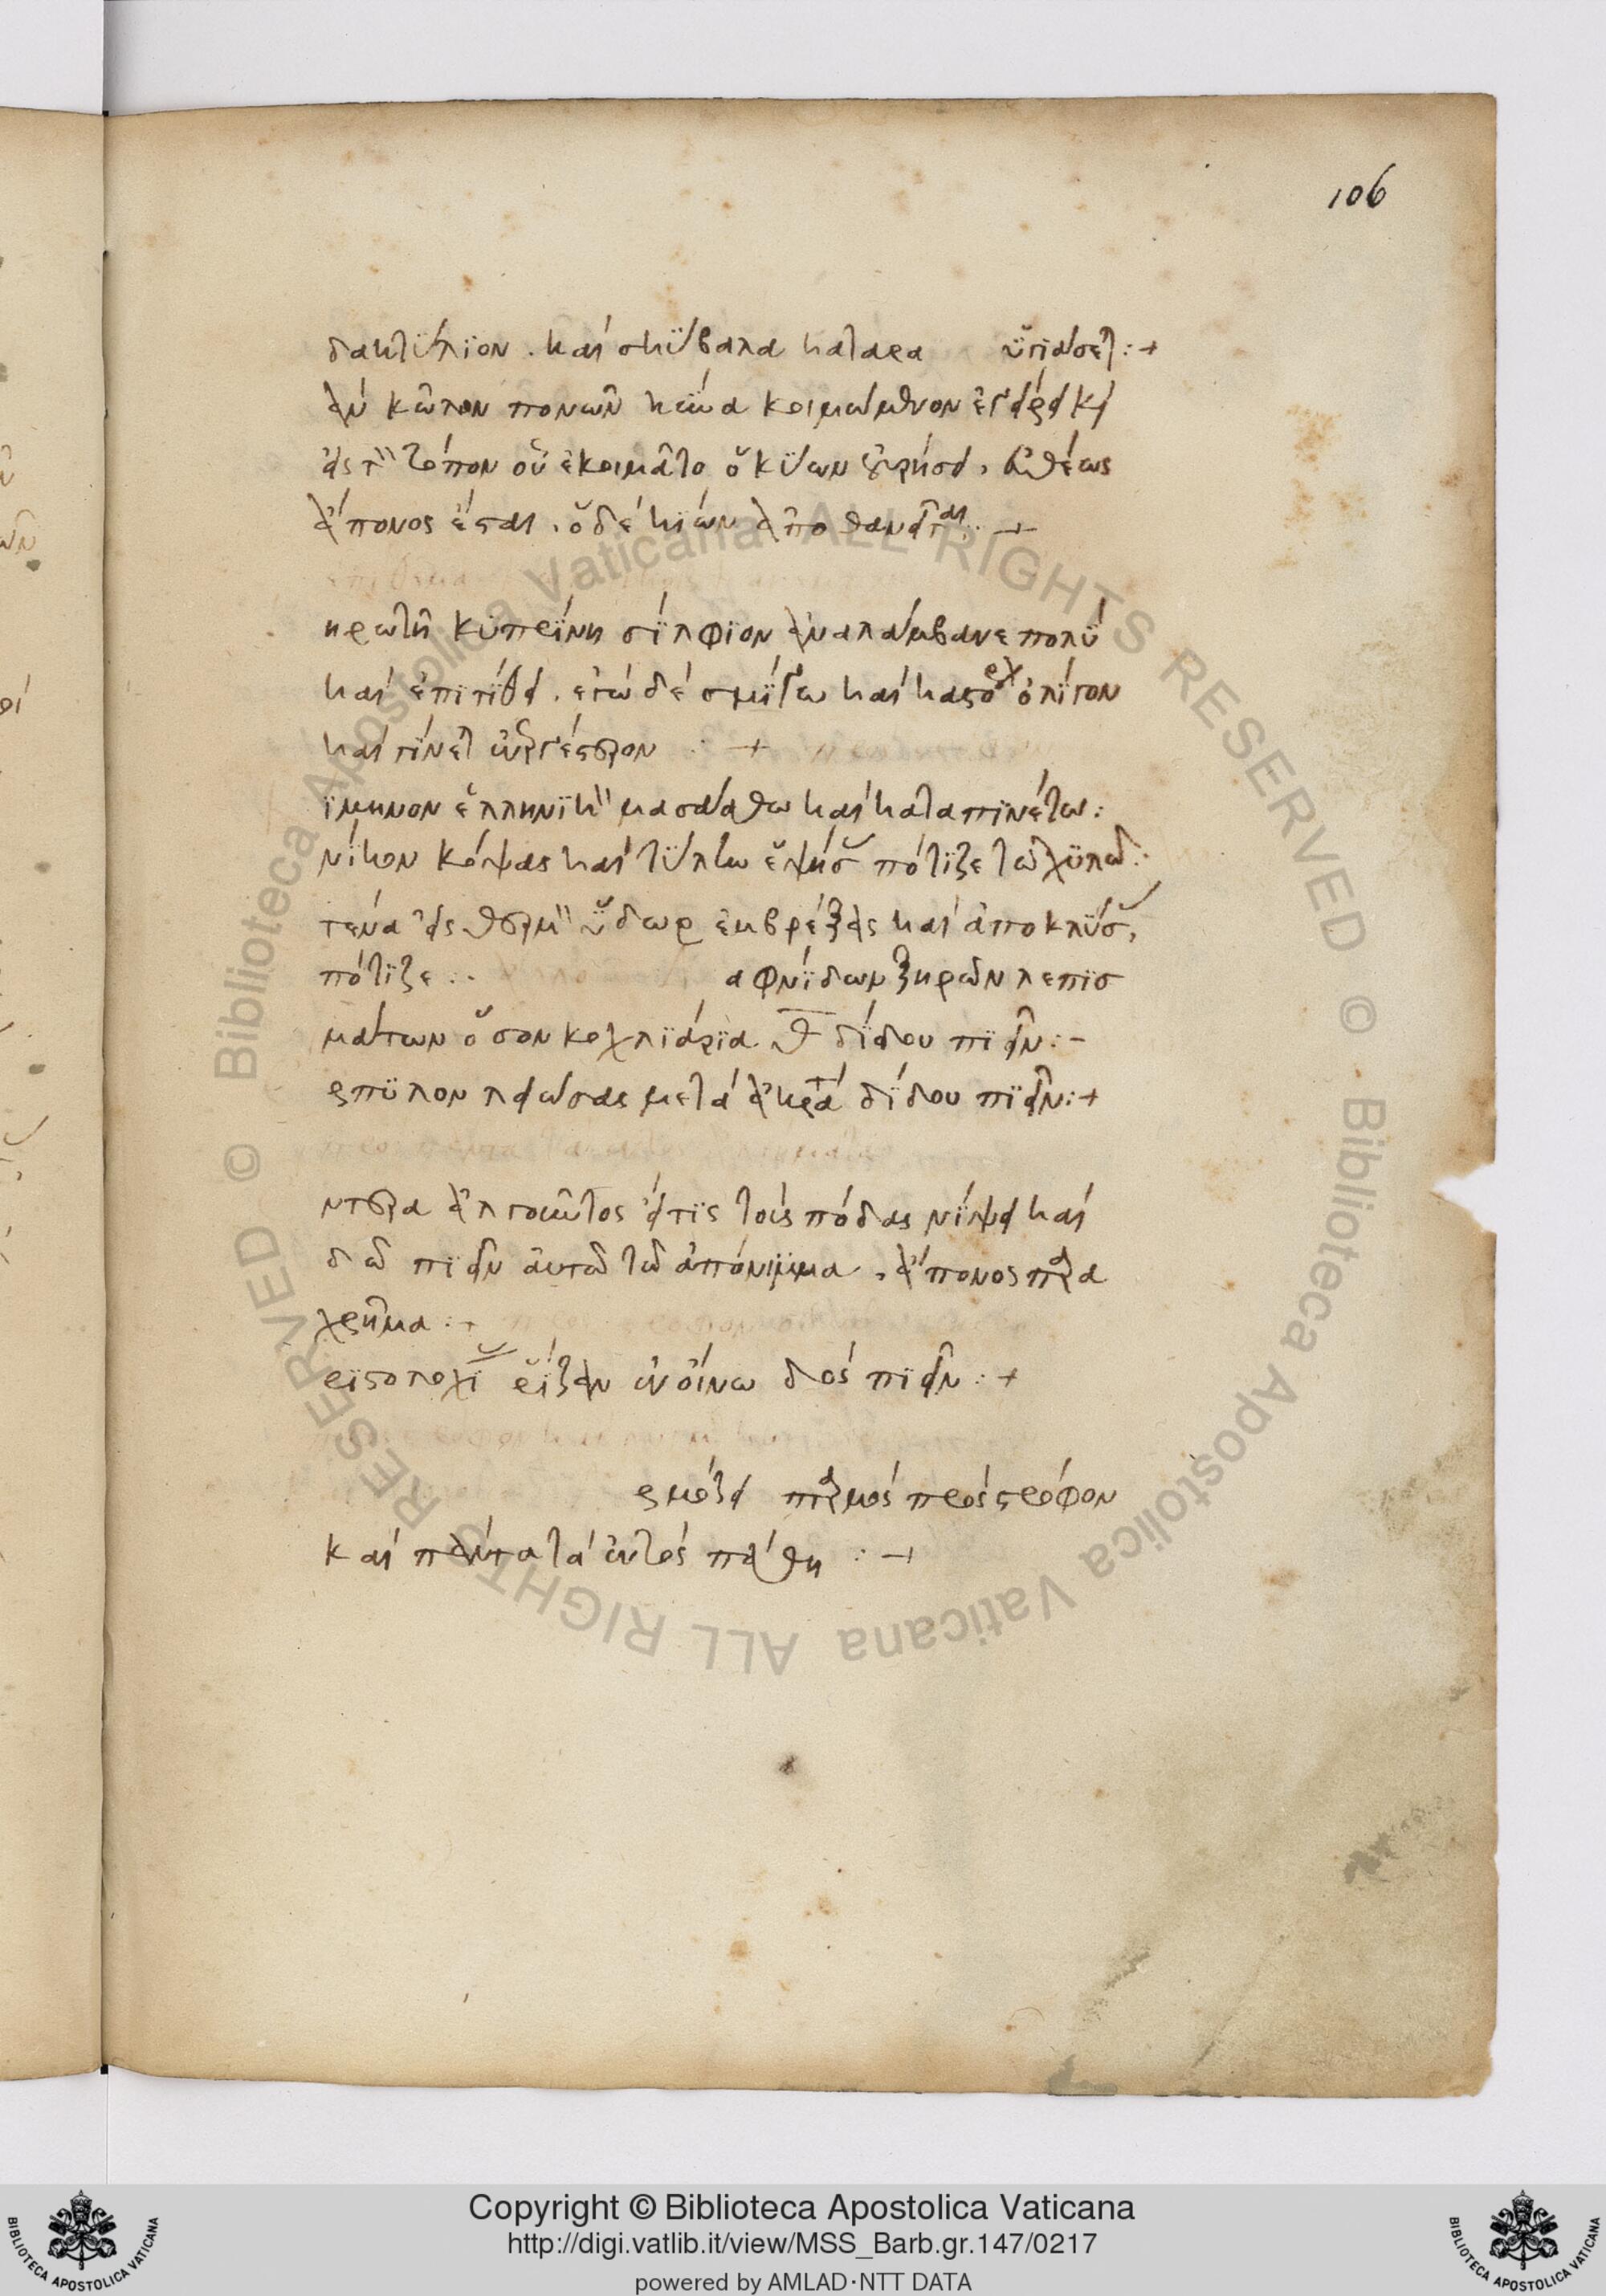 106
δακτύλϊον . καὶ σκΰβαλα καταρα ὑγιάσει :+
ἀν κῶλον πονῶν κύνα κοιμώμενον ἐγείρει κ(αὶ)
εἰς τ(ὸν) τόπον οὗ ἐκοιμᾶτο ὁ κύων οὐρήσει, εὐθέως
ἄπονος ἔσται . ὁ δὲ κύων ἀποθανεῖται :+
κηρωτῆ κυπρίνη σίλφιον ἀναλάμβανε πολὺ
καὶ ἐπιτίθει . ἐγὼ δὲ σμίγω καὶ καστορ ὀλίγον
καὶ γίνεται ἐνεργέστερον :+
ϊμηνον ἑλληνικ(ὸν) μασάσθω καὶ καταπινέτω :
νικον κόψας καὶ τύλω ἑψήσ πότιζε τῶ χυλῶ :
τενα εἰς θερμ(ὸν) ὕδωρ ἐμβρέξεις καὶ ἀποκλύσ,
πότιζε :. αφνίδων ξηρῶν λεπισ
μάτων ὅσον κοχλιάρια θ δίδου πιεῖν :-
σπυλον λειώσας μετὰ ἀκρά(του) δίδου πιεῖν :+
ντερα ἀλγοῦντος εἴ τις τοὺς πόδας νίψει καὶ
δῶ πιεῖν αὐτῶ τῶ ἀπόνιμμα , ἄπονος παρα
χρῆμα :+
ριστολοχί ρίζαν ἐν οἴνω δὸς πιεῖν :+
ρμόζει παλμὸς πρὸς στρόφον
καὶ πάντα τὰ ἐντὸς πάθη :+
Copyright © Biblioteca Apostolica Vaticana
http://digi.vatlib.it/view/MSS_Barb.gr.147/0217
powered by AMLAD·NTT DATA
BIBLIOTECA APOSTOLICA VATICANA
BIBLIOTECA APOSTOLICA VATICANA
© Biblioteca Apostolica Vaticana ALL RIGHTS RESERVED © Biblioteca Apostolica Vaticana ALL RIGHTS RESERVED